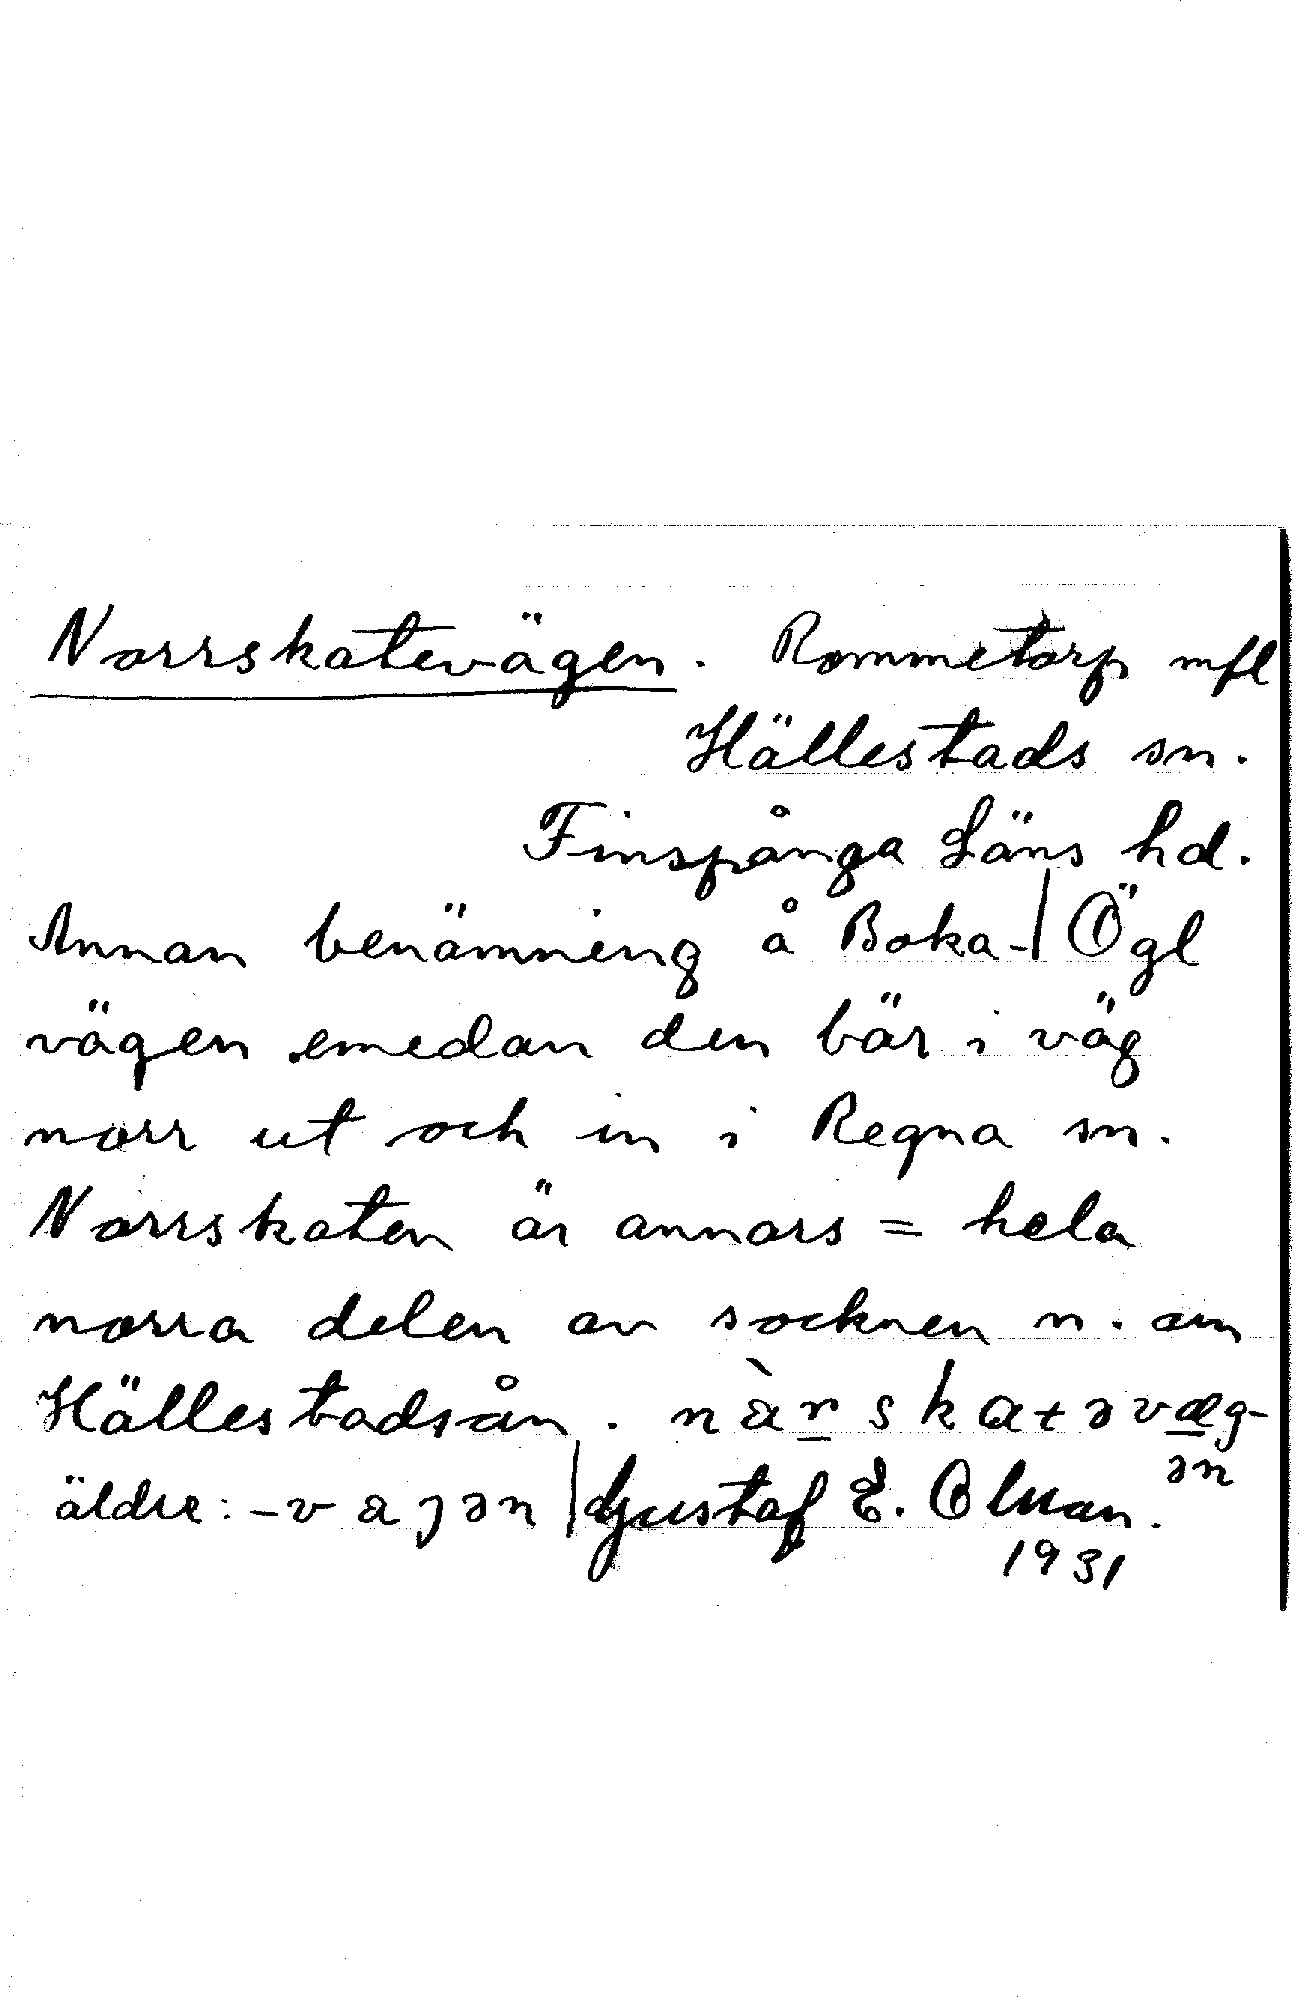 Norrskatevägen. Rommetorp mfl
Hällestads sn.
Finspånga Läns hd.
Annan benämning å Boka-| Ögl
vägen emedan den bär i väg
norr ut och in i Regna sn.
Norrskaten är annars = hela
norra delen av socknen n. om
Hällestadsån. nàrskatəvæg-
ən
äldre: -vajən | Gustaf E. Olman.
1931